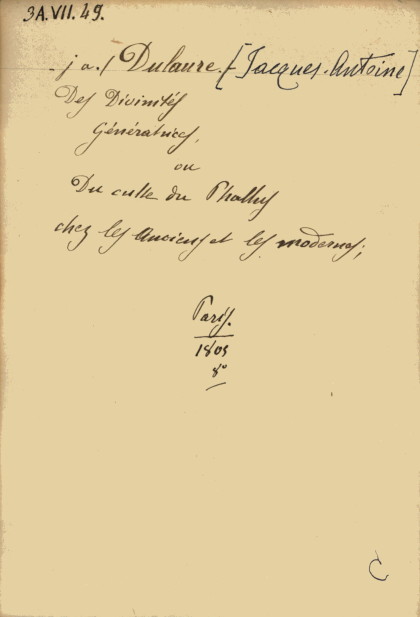 3A.VII.49.
- j a. / Dulaure. - [Jacques-Antoine]
Des Divinités
Génératrices,
ou
Du culte du Phallus
chez les Anciens et les modernes;
Paris.
1805
8°
C